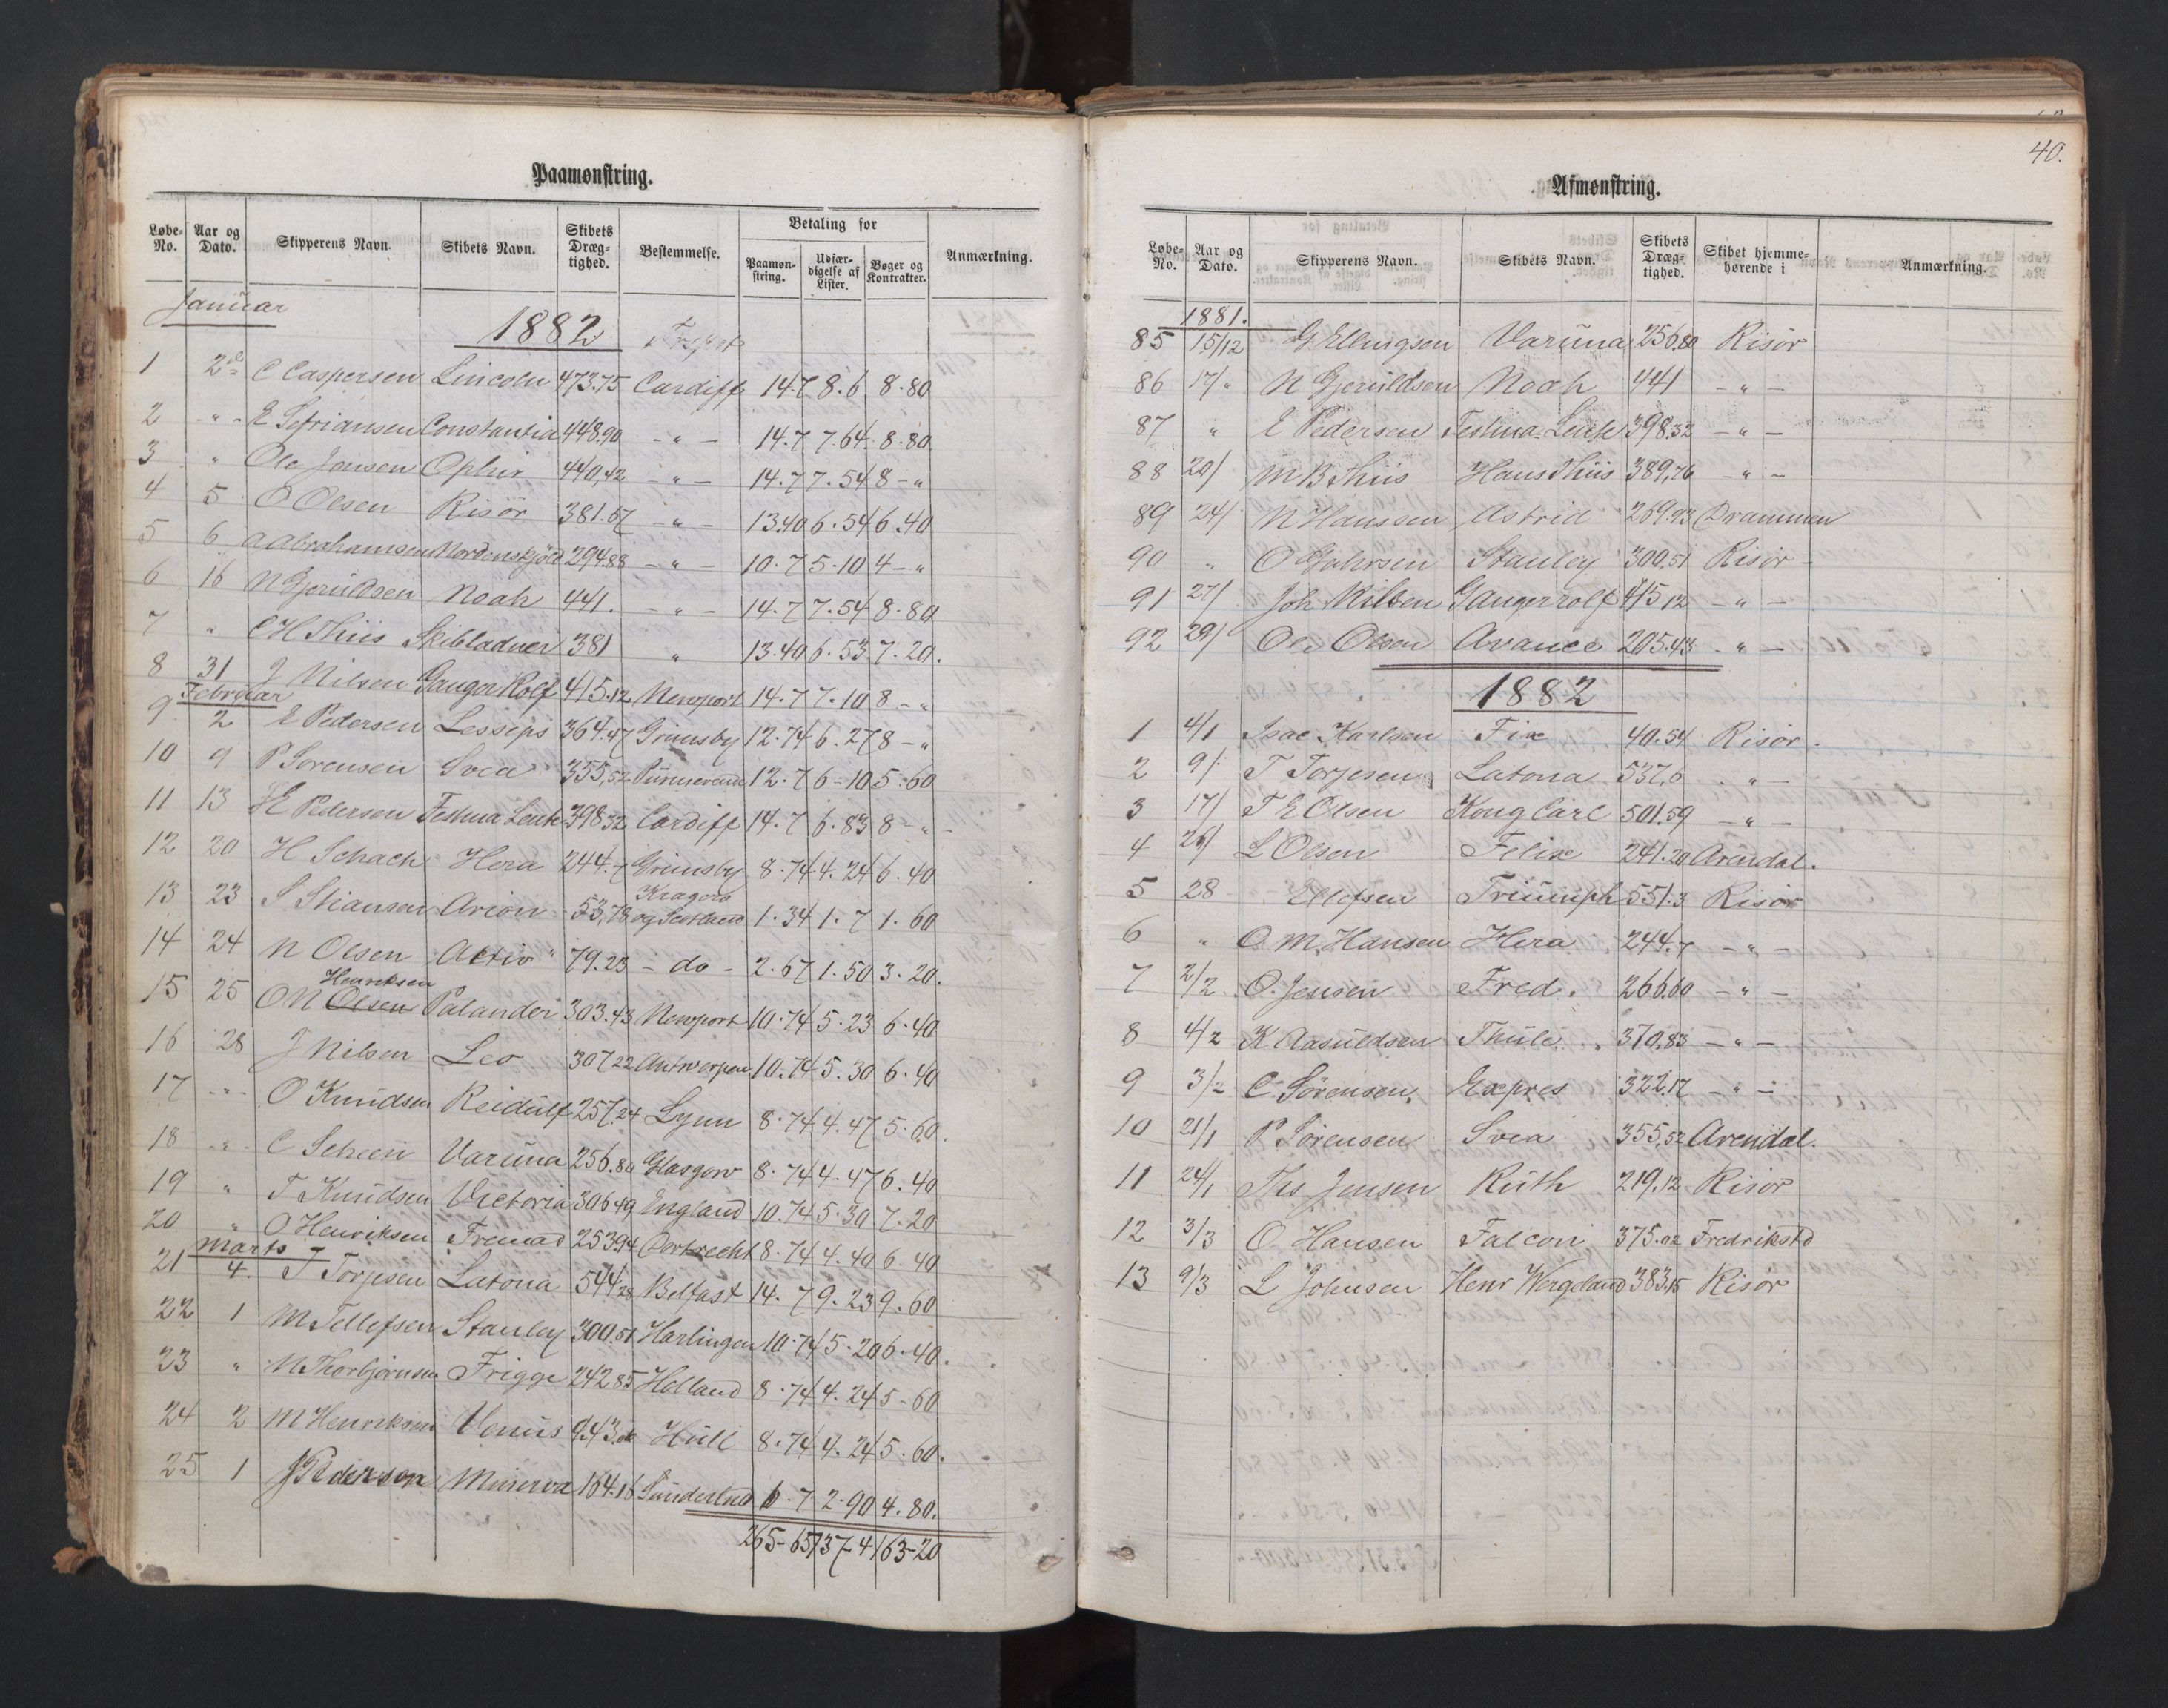 Paamønstring.
Løbe-No. Aar og Dato. Skipperens Navn. Skibets Navn. Skibets Dræg-tighed. Bestemmelse. Betaling for Paamøn-string. Udfær-digelse af Lister. Bøger og Kontrakter. Anmærkning.
Januar
1882
1 2 C Caspersen Lincoln 473.75 Cardiff 14.7 8.6 8.80
2 " E Sefriansen Constantia 448.90 - " - 14.7 7.64 8.80
3 " Ole Jensen Ophir 440,42 - " - 14.7 7.54 8 - "
4 5 O Olsen Risør 381.67 - " - 13.40 6.54 6.40
5 6 A Abrahamsen Nordenskjöld 294.88 - " - 10.7 5.10 4 - "
6 16 N Gjeruldsen Noah 441. - " - 14.7 7.54 8.80
7 " C H Thiis Skibladner 381 " 13.40 6.53 7.20.
8 31 J Nilsen Ganger Rolf 415.12 Newport 14.7 7.10 8 - "
Februar
9 2 E Pedersen Lesseps 364.47 Grimsby 12.74 6.27 8 - "
10 9 P Sorensen Svea 355,52 12.7 6-10 5.60
11 13 E Pedersen Teshua Lenk 398 32 Cardiff 14.7 6.83 8 - " -
12 20 H Schach Hera 244.7 Grimsby 8.74 4.24 6.40
13 23 S Stiansen Arion 53,78 Kragerö og Scotland 1.34 1.7 1.60
14 24 N Olsen Activ 79.23 - do - 2.67 1.50 3.20.
15 25 O N Olsen Henriksen Palander 303.43 Newport 10.74 5.23 6.40
16 28 J Nilsen Leo 307 22 Antwerpen 10.74 5.30 6.40
17 - " - O Knudsen Reidulf 257.24 Lynn 8.74 4.47 5.60.
18 " C Scheen Varuna 256.80 Glasgow 8.74 4.47 6.40
19 " T Knudsen Victoria 306 49 England 10.74 5.30 7.20
20 " O Henriksen Fremad 253.94 Dortrecht 8.74 4.40 6.40
Marts
21 4. T Torjesen Latona 544 28 Belfast 14.7 9.23 9.60
22 1 M Tellefsen Stanley 300.51 Harlingen 10.74 5.20 6.40.
23 " N Thorbjörnsen Frigge 242 85 Holland 8.74 4.24 5-60
24 2 M Henriksen Venus Hull 8.74 4.24 5.60.
25 1 J Pedersen Minerva 164.16 Sunderland 6.7 2.90 4.80.
265-65 137-4 163-20
40.
Afmønstring.
Løbe-No. Aar og Dato. Skipperens Navn. Skibets Navn. Skibets Dræg-tighed. Skibet hjemme-hørende i Anmærkning.
1881.
85 15/12 G Ellingsen Varuna 256.80 Risör
86 17/" N Gjeruldsen Noah 441 - " -
87 " E Pedersen Teshua Lenk 398.32 - " -
88 20/ M B Thiis Hans Thiis 389,76 - " -
89 24/ N Hanssen Astrid 269.93 Drammen
90 " O Stanley 300,51 Risör -
91 27/ Joh Nilsen Ganger rolf 415,12 - " -
92 29/ Ole Olsen Avance 205.43 - " -
1882
1 4/1 Isac Karlsen Fix 40.54 Risör.
2 9/ T Torjesen Latona 537,6 " -
3 17/ T E Olsen Kong Carl 501.59 - " -
4 26/ L Olsen Felix 241.20 Arendal.
5 28 Ellefsen Triumph 551.3 Risör
6 " O M. Hansen Hera 244.7 - " -
7 2/2 O. Jensen Fred. 266.60 - " -
8 4/2 K Aasuldsen Thule 370.83 - " -
9 3/2 C Sörensen. Expres 322.17 - " -
10 21/1 P Sörensen Svea 355,52 Arendal.
11 24/1 Ths Jensen Ruth 219.12 Risör
12 3/3 O Hansen Falcon 375.02 Fredrikstd
13 9/3 L Johnsen Henr Wergeland 383.15 Risör